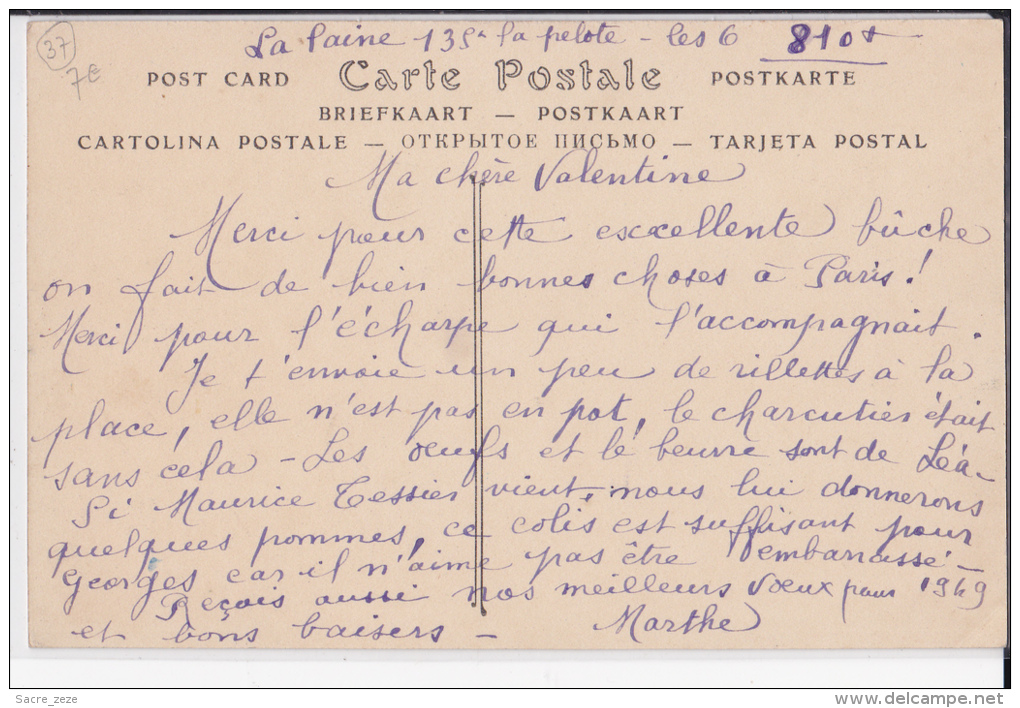 37
7€
La laine 135 la pelote - les 6 810
POST CARD Carte Postale POSTKARTE
BRIEFKAART — POSTKAART
CARTOLINA POSTALE — ОТКРЫТОЕ ПИСЬМО — TARJETA POSTAL
Ma chère Valentine
Merci pour cette excellente bûche
on fait de bien bonnes choses à Paris !
Merci pour l'écharpe qui l'accompagnait.
Je t'envoie un peu de rillettes à la
place, elle n'est pas en pot, le charcutier était
sans cela - Les œufs et le beurre sont de Léa -
Si Maurice Tessier vient, nous lui donnerons
quelques pommes, ce colis est suffisant pour
Georges car il n'aime pas être embarrassé -
Reçois aussi nos meilleurs vœux pour 1949
et bons baisers - Marthe
Sacre_zeze
www.delcampe.net